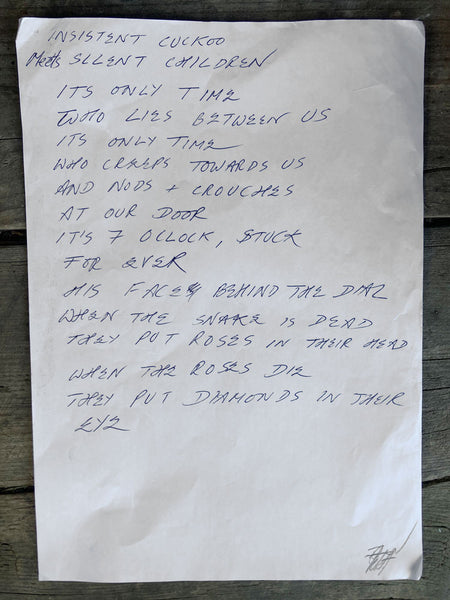 INSISTENT CUCKOO
Meets SLLENT CHILDREN
ITS ONLY TIME
WHO LIES BETWEEN US
ITS ONLY TIME
WHO CREEPS TOWARDS US
AND NODS + CROUCHES
AT OUR DOOR
IT'S 7 OCLOCK, STUCK
FOR EVER
HIS FACES BEHIND THE DIAL
WHEN THE SNAKE IS DEAD
THEY PUT ROSES IN THEIR HEAD
WHEN THE ROSES DIE
THEY PUT DIAMONDS IN THEIR
EYE